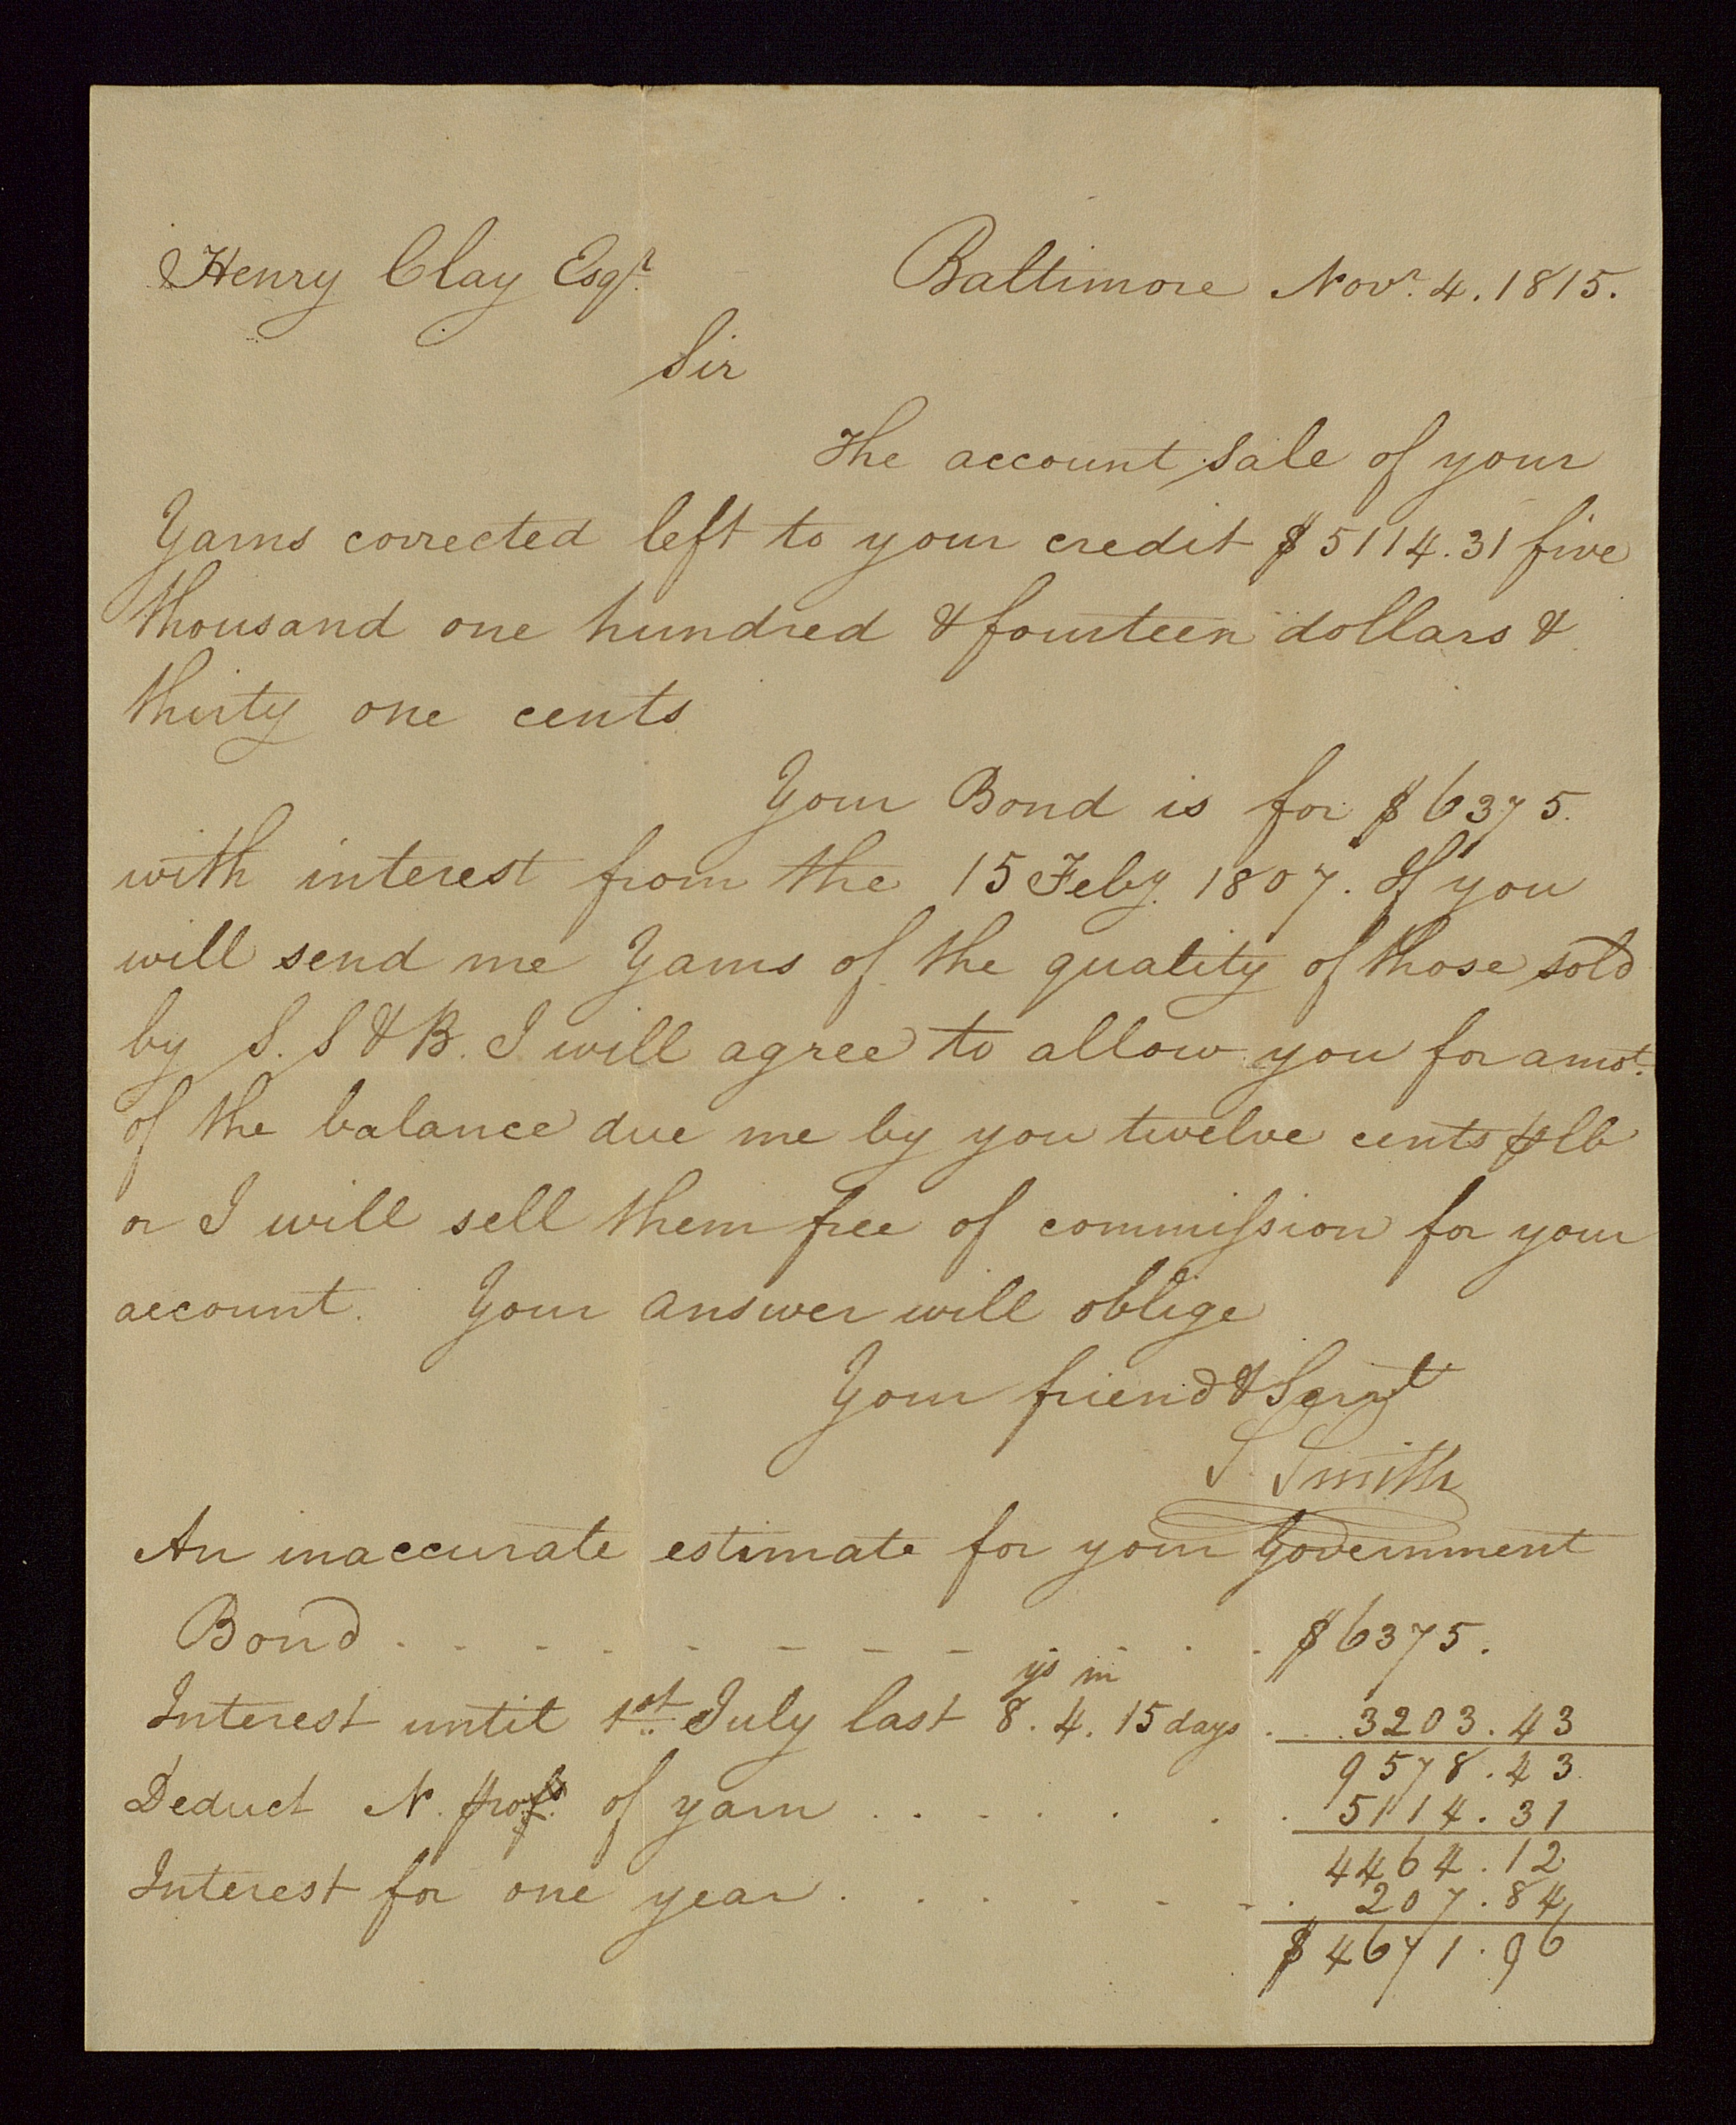 Henry Clay Esqr. Baltimore Novr. 4. 1815.
Sir
The account sale of your
Yarns corrected left to your credit $5114.31 five
thousand one hundred & fourteen dollars &
thirty one cents
Your Bond is for $6375.
with interest from the 15 Feby. 1807. If you
will send me Yarns of the quality of those sold
by S. S & B. I will agree to allow you for amot.
of the balance due me by you twelve cents ⅌ lb
or I will sell them free of commission for your
account. Your answer will oblige
Your friend & Servt
S. Smith
An inaccurate estimate for your Government
Bond . . . . . . . . . . $6375.
ys m
Interest until 1st July last 8. 4. 15 days . . . 3203.43
9578.43
Deduct N. of yarn . . . . . . 5114.31
4464.12
Interest for one year . . . . . . 207.84
$4671.96